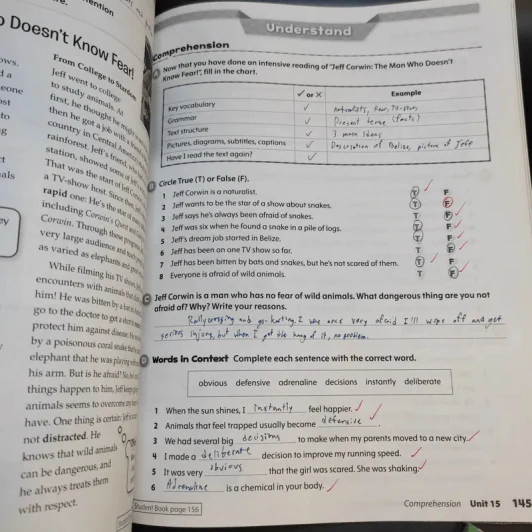 Doesn't Know Fear!
From College to Stardom
Jeff went to college
to study animals. At
first, he thought he might
then he got a job with a
country in Central America
rainforest. Jeff's friend, who
station, showed some of
That was the start of Jeff's
a TV-show host. Since then,
rapid one: He's the star of
including Corwin's Quest and
Corwin. Through these programs
very large audience and
as varied as elephants and
While filming his TV shows,
encounters with animals that
him! He was bitten by a
go to the doctor to get a
protect him against disease. He
by a poisonous coral snake that
elephant that he was playing with
his arm. But is he afraid? No,
things happen to him, Jeff keeps
animals seems to overcome any
have. One thing is certain: Jeff is
not distracted. He
knows that wild animals
can be dangerous, and
he always treats them
with respect.
Student Book page 156
Understand
Comprehension
A Now that you have done an intensive reading of "Jeff Corwin: The Man Who Doesn't
Know Fear!", fill in the chart.
✓ or X Example
Key vocabulary ✓ naturalists, fear, TV-show
Grammar ✓ Present tense (facts)
Text structure ✓ 3 main ideas
Pictures, diagrams, subtitles, captions ✓ Description of Belize, picture of Jeff
Have I read the text again? ✓
B Circle True (T) or False (F).
1 Jeff Corwin is a naturalist. T F
2 Jeff wants to be the star of a show about snakes. T F
3 Jeff says he's always been afraid of snakes. T F
4 Jeff was six when he found a snake in a pile of logs. T F
5 Jeff's dream job started in Belize. T F
6 Jeff has been on one TV show so far. T F
7 Jeff has been bitten by bats and snakes, but he's not scared of them. T F
8 Everyone is afraid of wild animals. T F
C Jeff Corwin is a man who has no fear of wild animals. What dangerous thing are you not
afraid of? Why? Write your reasons.
Rallycrossing and go-karting. I was once very afraid I'll wipe off and get
serious injury, but when I got the hang of it, no problem.
D Words in Context Complete each sentence with the correct word.
obvious defensive adrenaline decisions instantly deliberate
1 When the sun shines, I instantly feel happier.
2 Animals that feel trapped usually become defensive.
3 We had several big decisions to make when my parents moved to a new city.
4 I made a deliberate decision to improve my running speed.
5 It was very obvious that the girl was scared. She was shaking.
6 Adrenaline is a chemical in your body.
Comprehension Unit 15 145